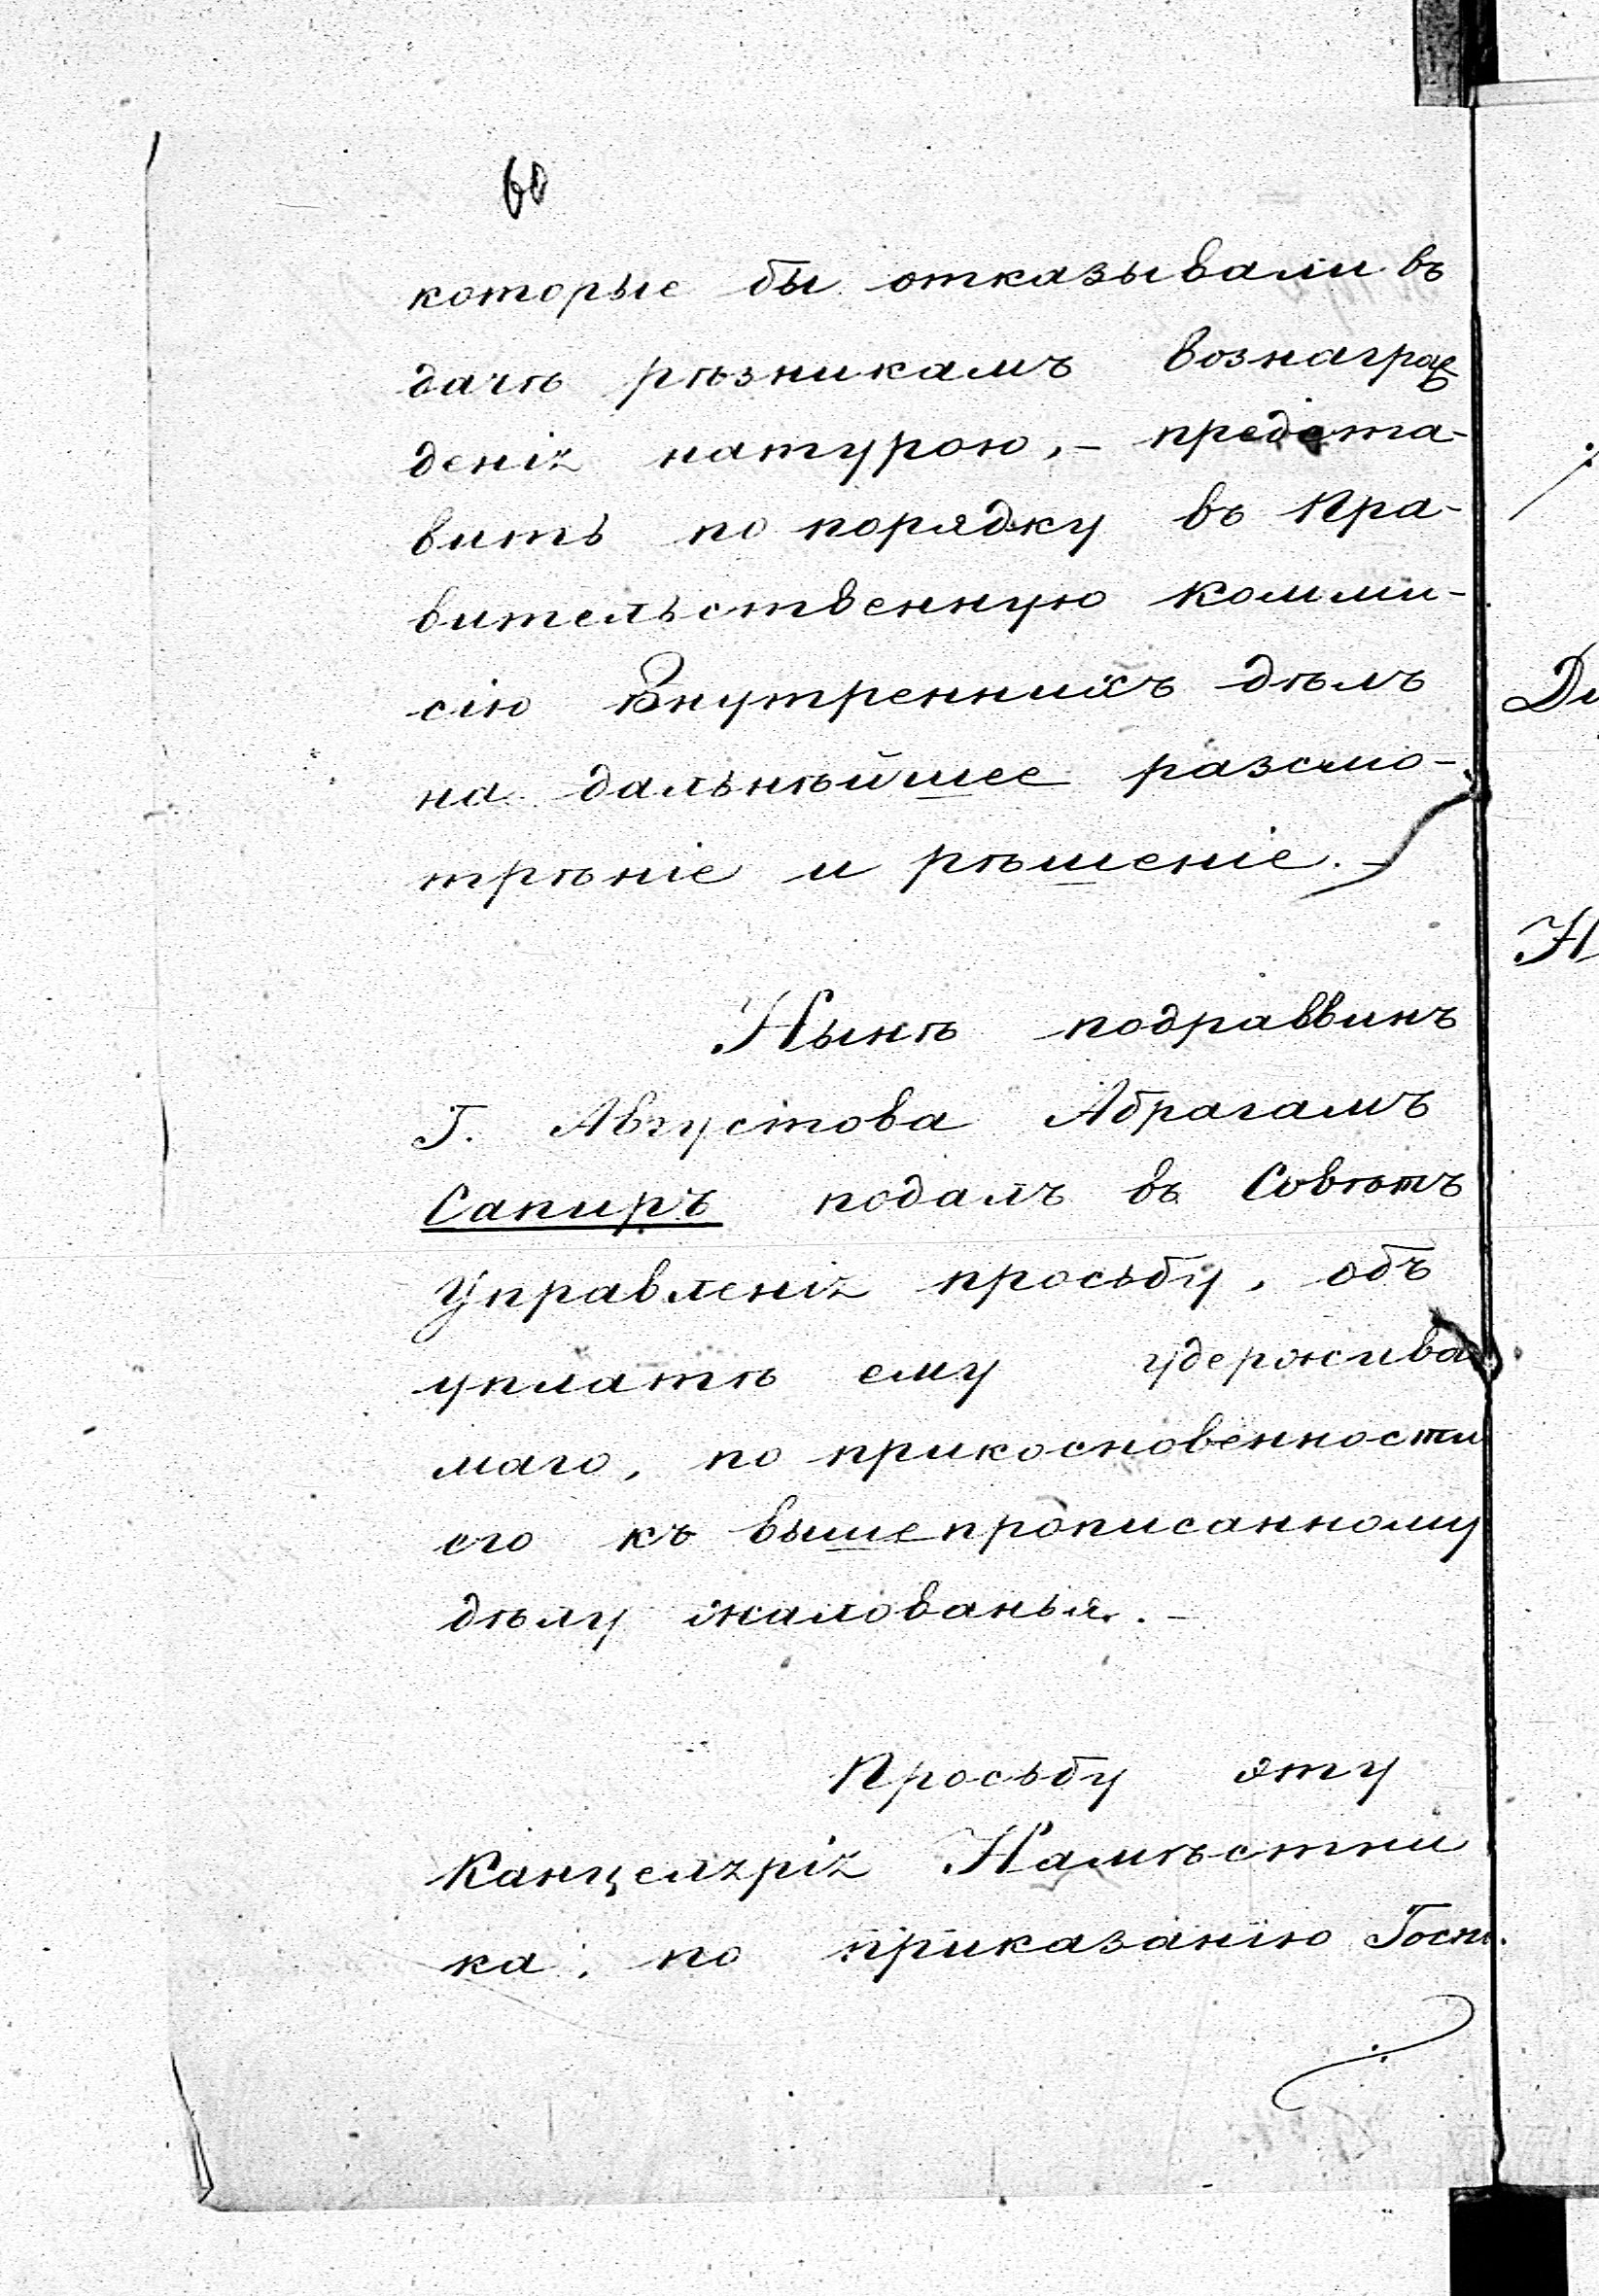 60
которые бы отказывали въ
дачѣ рѣзникамъ вознаграж
денія натурою, – предста-
вить по порядку въ Пра-
вительственную Комми-
сію Внутреннихъ дѣлъ
на дальнѣйшее разсмо-
трѣніе и рѣшеніе. –
Нынѣ подраввинъ
Г. Августова Абрагамъ
Сапиръ подалъ въ Совѣтъ
Управленія просьбу, объ
уплатѣ ему удержива
маго, по прикосновенности
его къ вышепрописанному
дѣлу жалованья. –
Просьбу эту
Канцелярія Намѣстни
ка, по приказанію Госп.